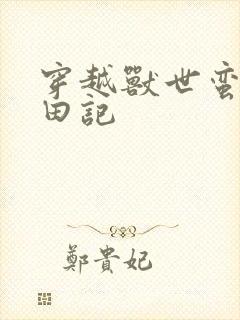 穿越獸世蛮
田記
鄭貴妃